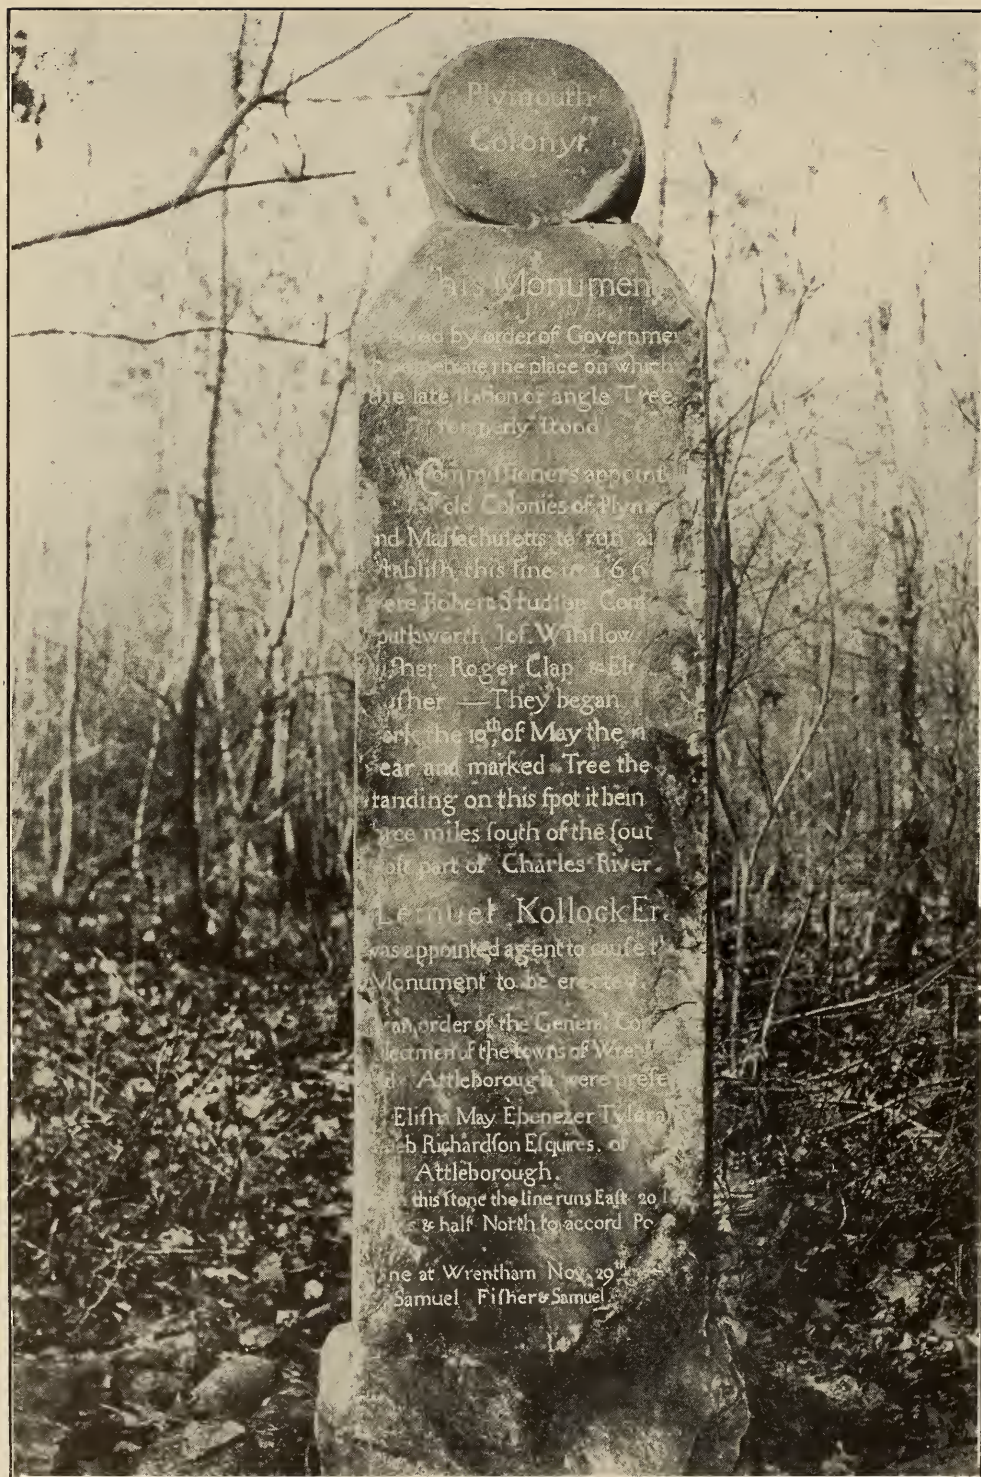 Plymouth
Colony.
his Monumen
by order of Governme
the place on which
the late ſtation or angle Tree
formerly ſtood
Commiſſioners appoint
old Colonies of Plym
nd Maſſachuſetts to run a
ſtabliſh this line in 166
ere Robert Studſon Conſ
outhworth Joſ. Winſlow
iſher Roger Clap & El
iſher — They began
ork the 19th of May the
ear and marked a Tree the
tanding on this ſpot it bein
ree miles ſouth of the ſout
oſt part of Charles River.
Lemuel Kollock
was appointed agent to cauſe t
Monument to be erected.
an order of the General Co
lectmen of the towns of Wren
d Attleborough were preſe
Eliſha May Ebenezer Tyler
eb Richardſon Eſquires. of
Attleborough.
this ſtone the line runs Eaſt 20
& half North to accord Po
ne at Wrentham Nov. 29th
Samuel Fiſher & Samuel